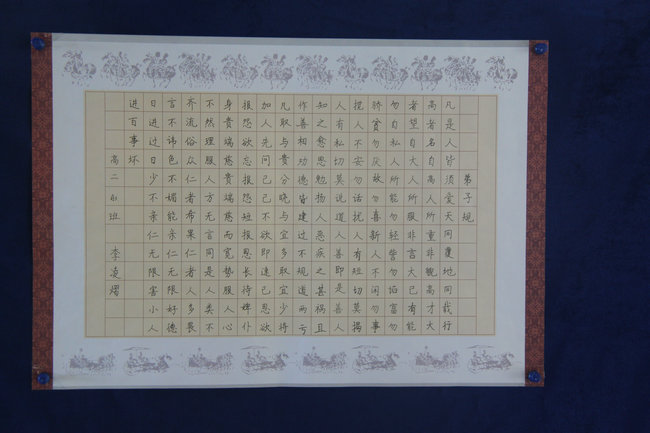 弟子规
凡是人皆须爱天同覆地同载行
高者名自高人所重非貌高才大
者望自大人所服非言大己有能
勿自私人所能勿轻訾勿谄富勿
骄贫勿厌故勿喜新人不闲勿事
搅人不安勿话扰人有短切莫揭
人有私切莫说道人善即是善人
知之愈思勉扬人恶疾之甚祸且
作善相劝德皆建过不规道两亏
凡取与贵分晓与宜多取宜少将
加人先问己己不欲即速已恩欲
报怨欲忘报怨短报恩长待婢仆
身贵端慈贵端慈而宽势服人心
不然理服人方无言同是人类不
齐流俗众仁者希果仁者人多畏
言不讳色不媚能亲仁无限好德
日进过日少不亲仁无限害小人
进百事坏
高二 班 李凌